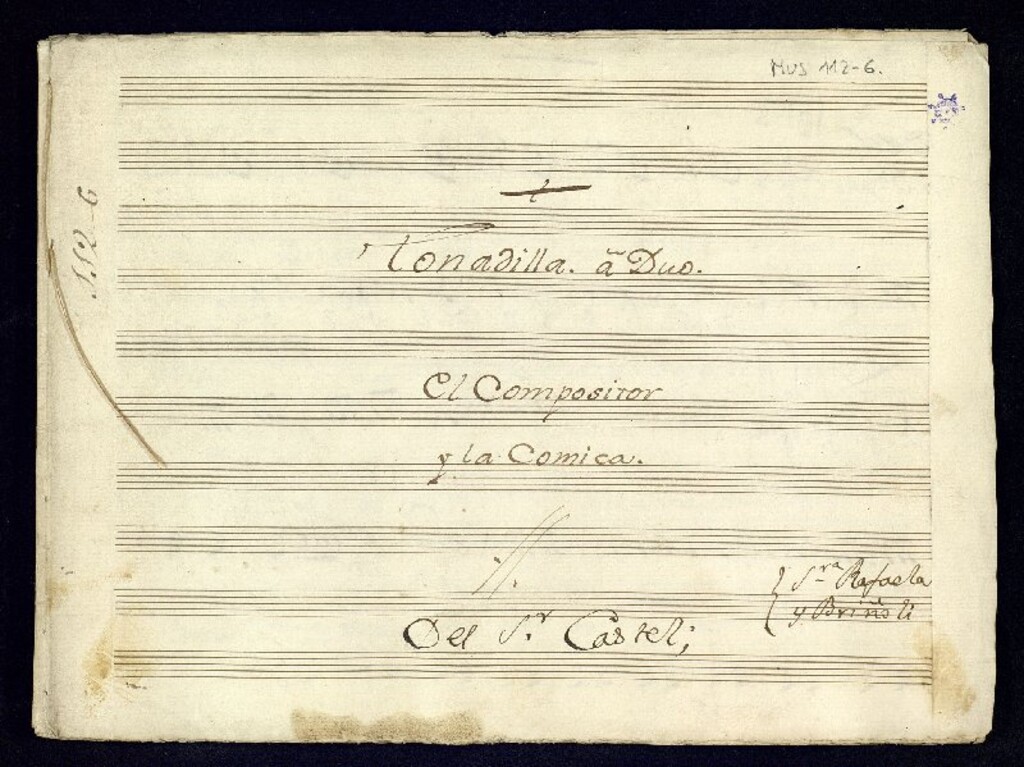 MUS 112-6.
112-6
Tonadilla. â Duo.
El Compositor
y la Comica.
Sra Rafaela
y Briñoli
Del Sr. Castel;